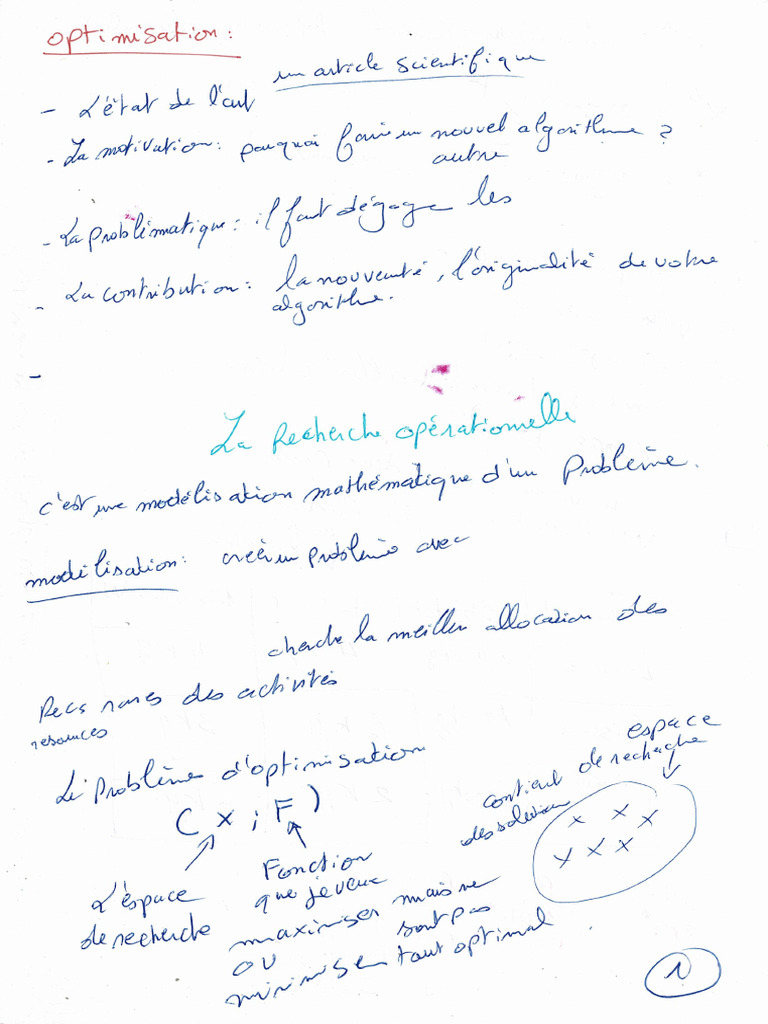 optimisation :
un article scientifique
- L'état de l'art
- La motivation : pourquoi faire un nouvel algorithme ?
autre
- La problématique : il faut dégage les
- La contribution : la nouveauté, l'originalité de votre
algorithme.
-
La Recherche opérationnelle
c'est une modélisation mathématique d'un Problème.
modélisation : créé un problème avec
cherche la meilleu allocation des
rares des activités
Le Problème d'optimisation
( X ; F )
L'espace
de recherche
Fonction
que je veux
maximiser
ou
minimiser
mais ne
sont pas
tout optimal
espace
de recherche
contient
des solution
x x x
x x x
1